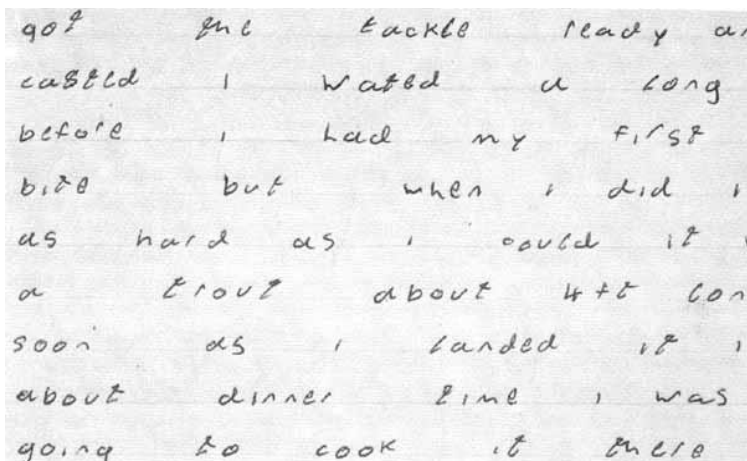 got the tackle ready an
casted i wated a long
before i had my first
bite but when i did i
as hard as i could it
a trout about 4ft lon
soon as i landed it i
about dinner time i was
going to cook it there